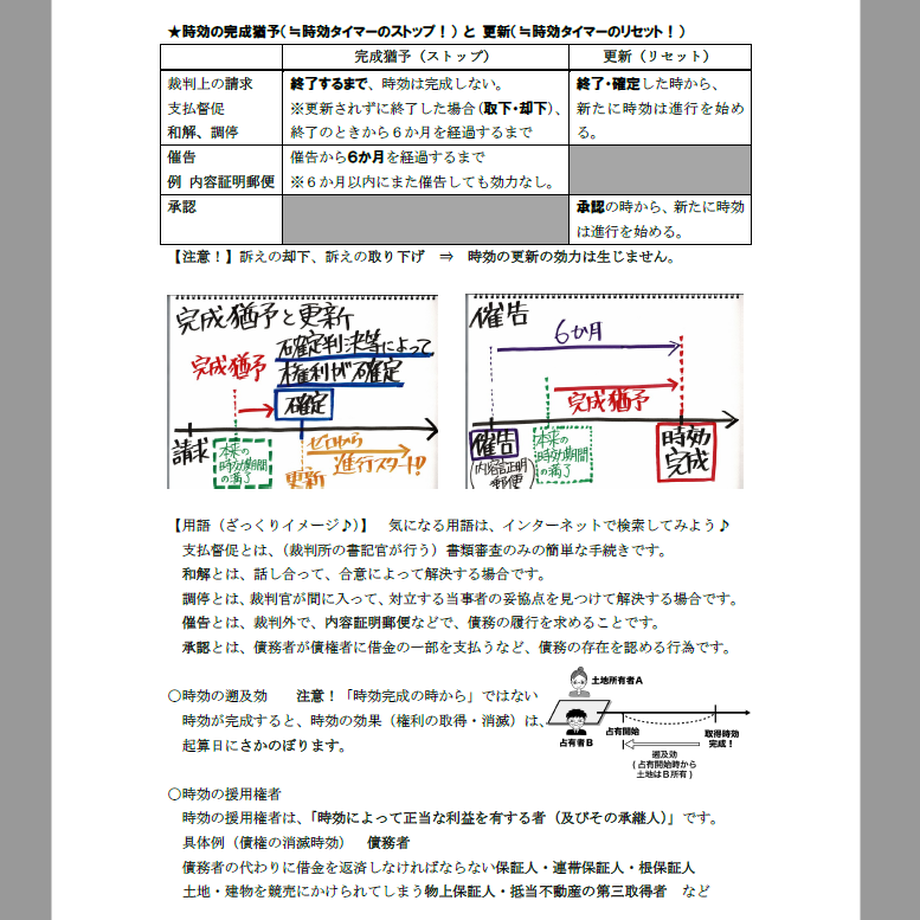 ★時効の完成猶予(≒時効タイマーのストップ!)と 更新(≒時効タイマーのリセット!)
完成猶予(ストップ)
更新(リセット)
裁判上の請求
支払督促
和解、調停
終了するまで、時効は完成しない。
※更新されずに終了した場合(取下・却下)、
終了のときから6か月を経過するまで
終了・確定した時から、
新たに時効は進行を始め
る。
催告
例 内容証明郵便
催告から6か月を経過するまで
※6か月以内にまた催告しても効力なし。
承認
承認の時から、新たに時効
は進行を始める。
【注意!】訴えの却下、訴えの取り下げ ⇒ 時効の更新の効力は生じません。
完成猶予と更新
確定判決等によって
権利が確定
完成猶予
確定
請求
本来の
時効期間
の満了
更新
ゼロから
進行スタート!!
催告
6か月
完成猶予
催告
内容証明
郵便
本来の
時効期間
の満了
時効
完成
【用語(ざっくりイメージ♪)】 気になる用語は、インターネットで検索してみよう♪
支払督促とは、(裁判所の書記官が行う)書類審査のみの簡単な手続きです。
和解とは、話し合って、合意によって解決する場合です。
調停とは、裁判官が間に入って、対立する当事者の妥協点を見つけて解決する場合です。
催告とは、裁判外で、内容証明郵便などで、債務の履行を求めることです。
承認とは、債務者が債権者に借金の一部を支払うなど、債務の存在を認める行為です。
○時効の遡及効 注意!「時効完成の時から」ではない
時効が完成すると、時効の効果(権利の取得・消滅)は、
起算日にさかのぼります。
土地所有者A
占有者B
占有開始
取得時効
完成!
遡及効
(占有開始時から
土地はB所有)
○時効の援用権者
時効の援用権者は、「時効によって正当な利益を有する者(及びその承継人)」です。
具体例(債権の消滅時効) 債務者
債務者の代わりに借金を返済しなければならない保証人・連帯保証人・根保証人
土地・建物を競売にかけられてしまう物上保証人・抵当不動産の第三取得者 など